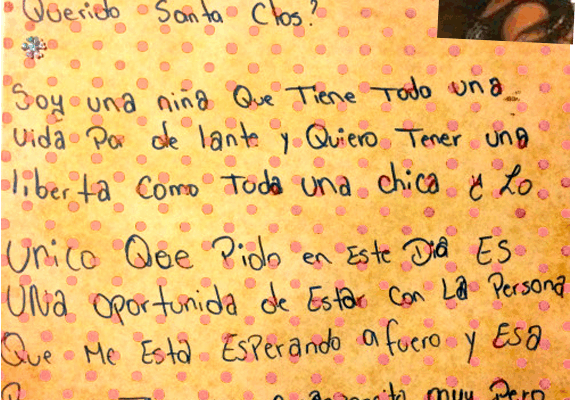 Querido Santa Clos?
Soy una niña Que Tiene Todo una
vida Por de lante y Quiero Tener una
liberta Como Toda una chica y Lo
Unico Qee Pido en Este Dia ES
UNa oportunida de Estar Con La Persona
Que Me Esta Esperando afuero y Esa
muy Pero